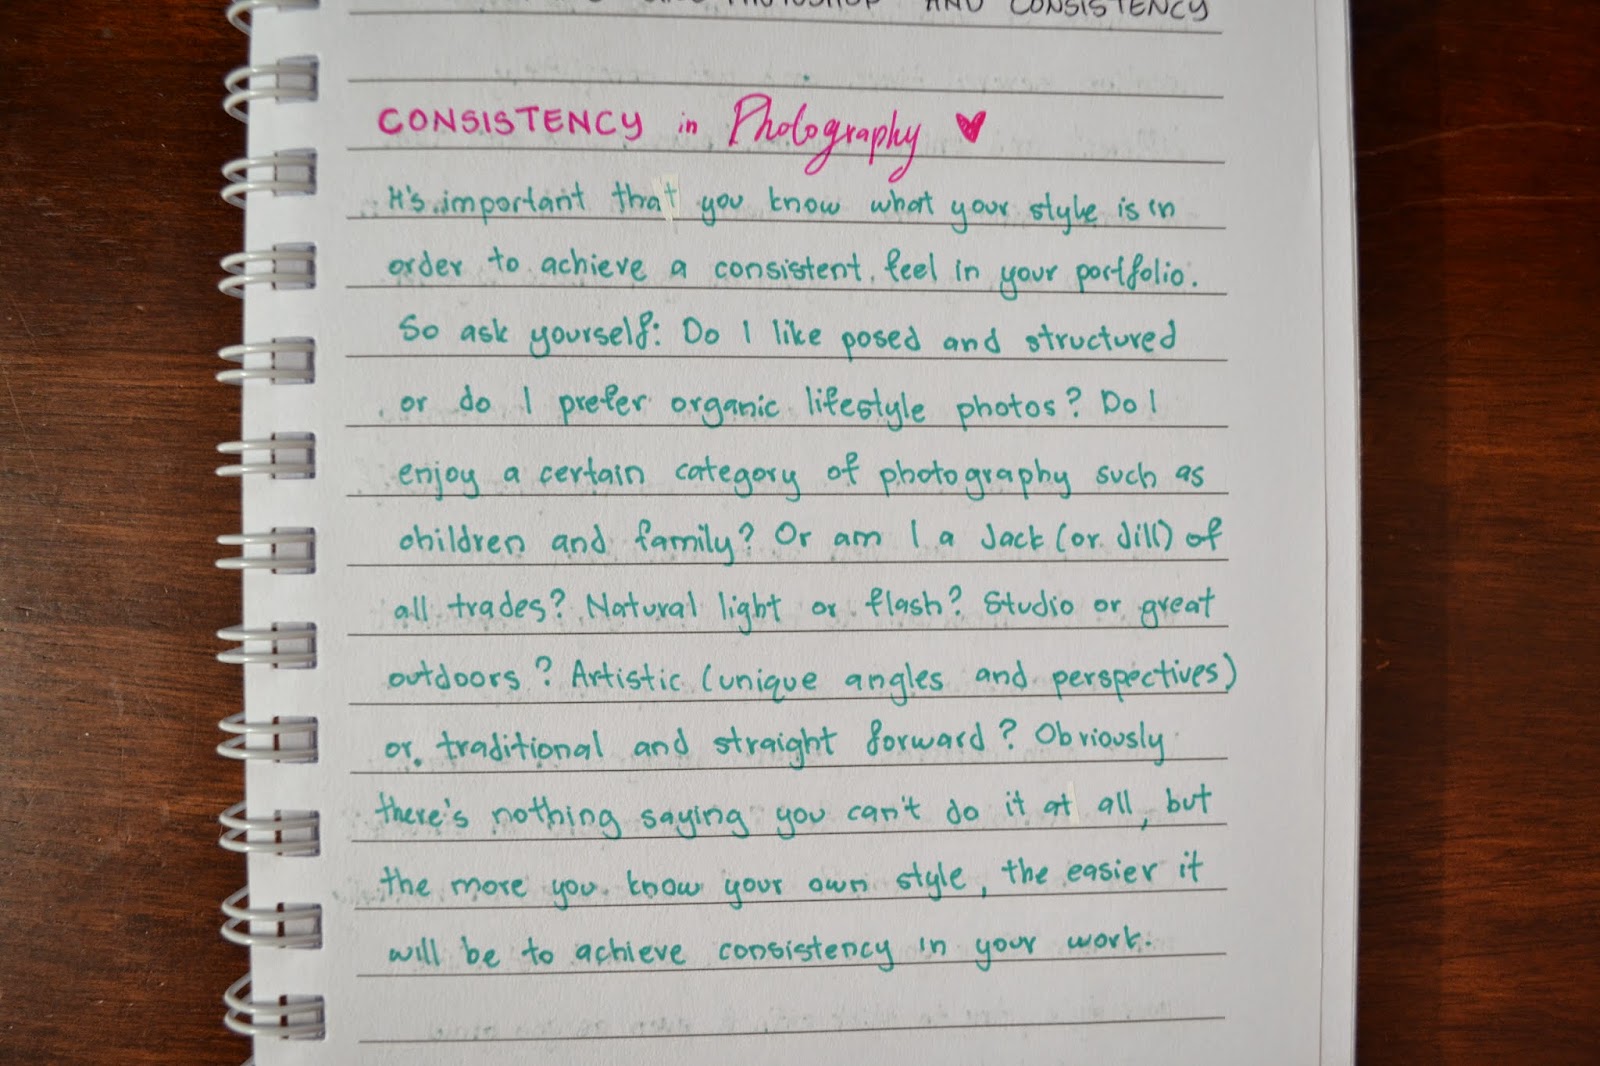 PHOTOSHOP AND CONSISTENCY
CONSISTENCY in Photography
It's important that you know what your style is in
order to achieve a consistent feel in your portfolio.
So ask yourself: Do I like posed and structured
or do I prefer organic lifestyle photos? Do I
enjoy a certain category of photography such as
children and family? Or am I a Jack (or dill) of
all trades? Natural light or flash? Studio or great
outdoors? Artistic (unique angles and perspectives)
or traditional and straight forward? Obviously
there's nothing saying you can't do it at all, but
the more you know your own style, the easier it
will be to achieve consistency in your work.